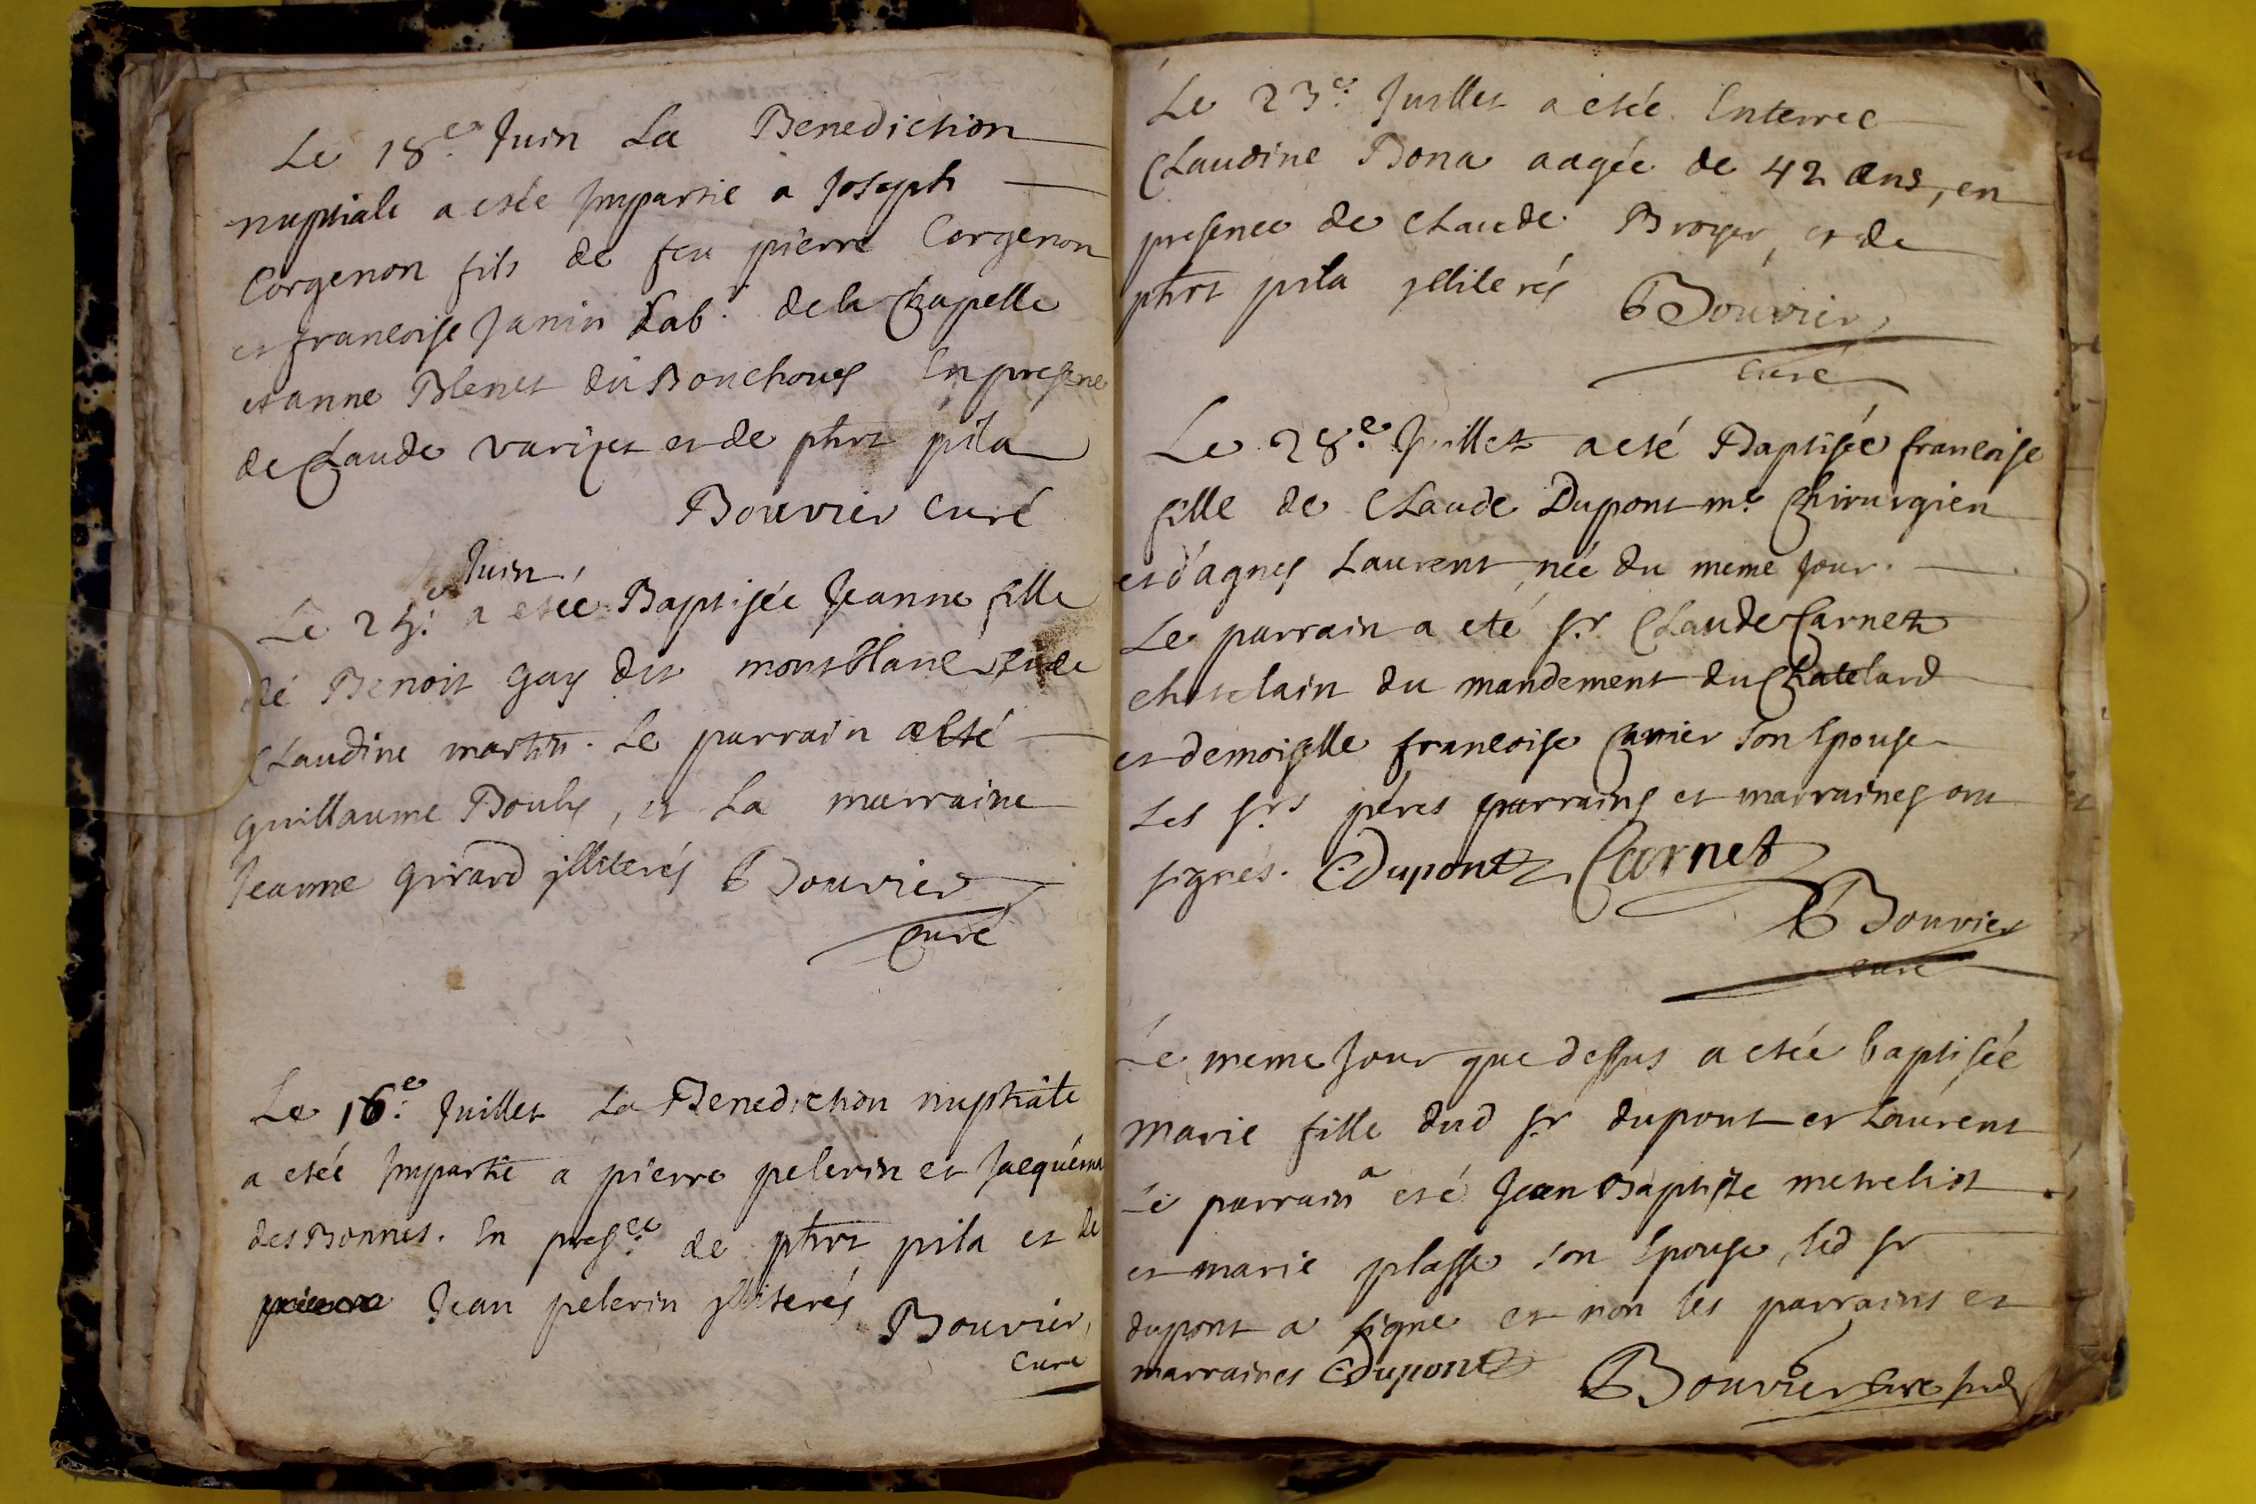 Le 18e. Juin La Benediction
nuptiale a etée Impartie a Joseph
Corgenon fils de feu pierre Corgenon
et francoise Janin Lab.r de la Chapelle
et anne Blenet du Bouchoug En presene
de Claude varixet et de phrt pila
Bouvier curé
Juin
Le 25e. a etée Baptisée Jeanne fille
dé Benoit gay dit montblanc et de
Claudine martin. Le parrain a eté
guillaume Bouly, et La marraine
Jeanne girard illiterés Bouvier
curé
Le 16e. Juillet La Benediction nuptiale
a etée Impartie a pierre pelerin et Jacquéma
des Bonnes. En presce. de phrt pila et de
pierre Jean pelerin illiterés
Bouvier,
curé
Le 23e. Juillet a etée Enterree
Claudine Bona aagée de 42 ans, en
presence de Claude Broyer, et de
phrt pila illiterés Bouvier
curé
Le 28e. Juillet a eté Baptisée francoise
fille de Claude Dupont me. Chirurgien
et d'agnes Laurent née du meme Jour.
Le parrain a eté sr. Claude Carnet
chatelain du mandement du Chatelard
et demoiselle francoise Carrier son Epouse
Les srs pères parrains et marraines ont
signés. C Dupont Carnet
Bouvier
curé
Le meme Jour que dessus a etée baptisée
Marie fille dud sr dupont et Laurent
Le parrain a eté Jean Baptiste metreliot
et marie plasse son Epouse, led sr
dupont a signe et non les parrains et
marraines C Dupont Bouvier curé